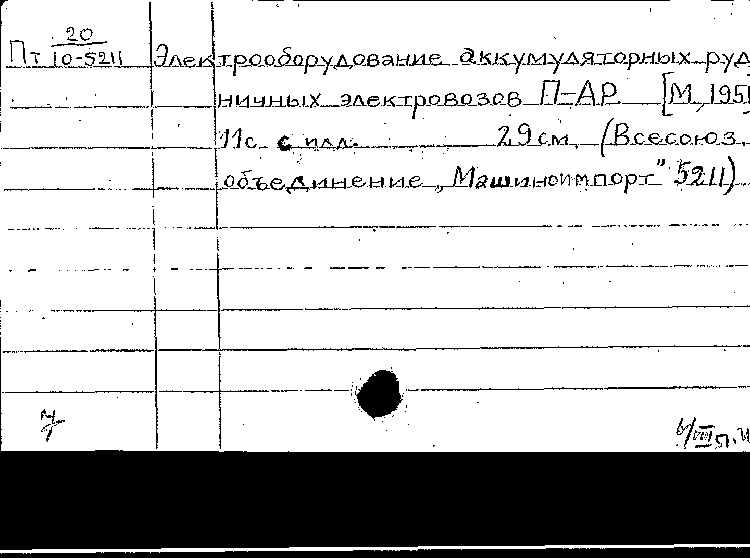 20
Пт 10-5211 Электрооборудование аккумуляторных руд
ничных электровозов П-АР. [М., 195
11с. с илл. 29 см. (Всесоюз.
объединение „Машиноимпорт" 5211)